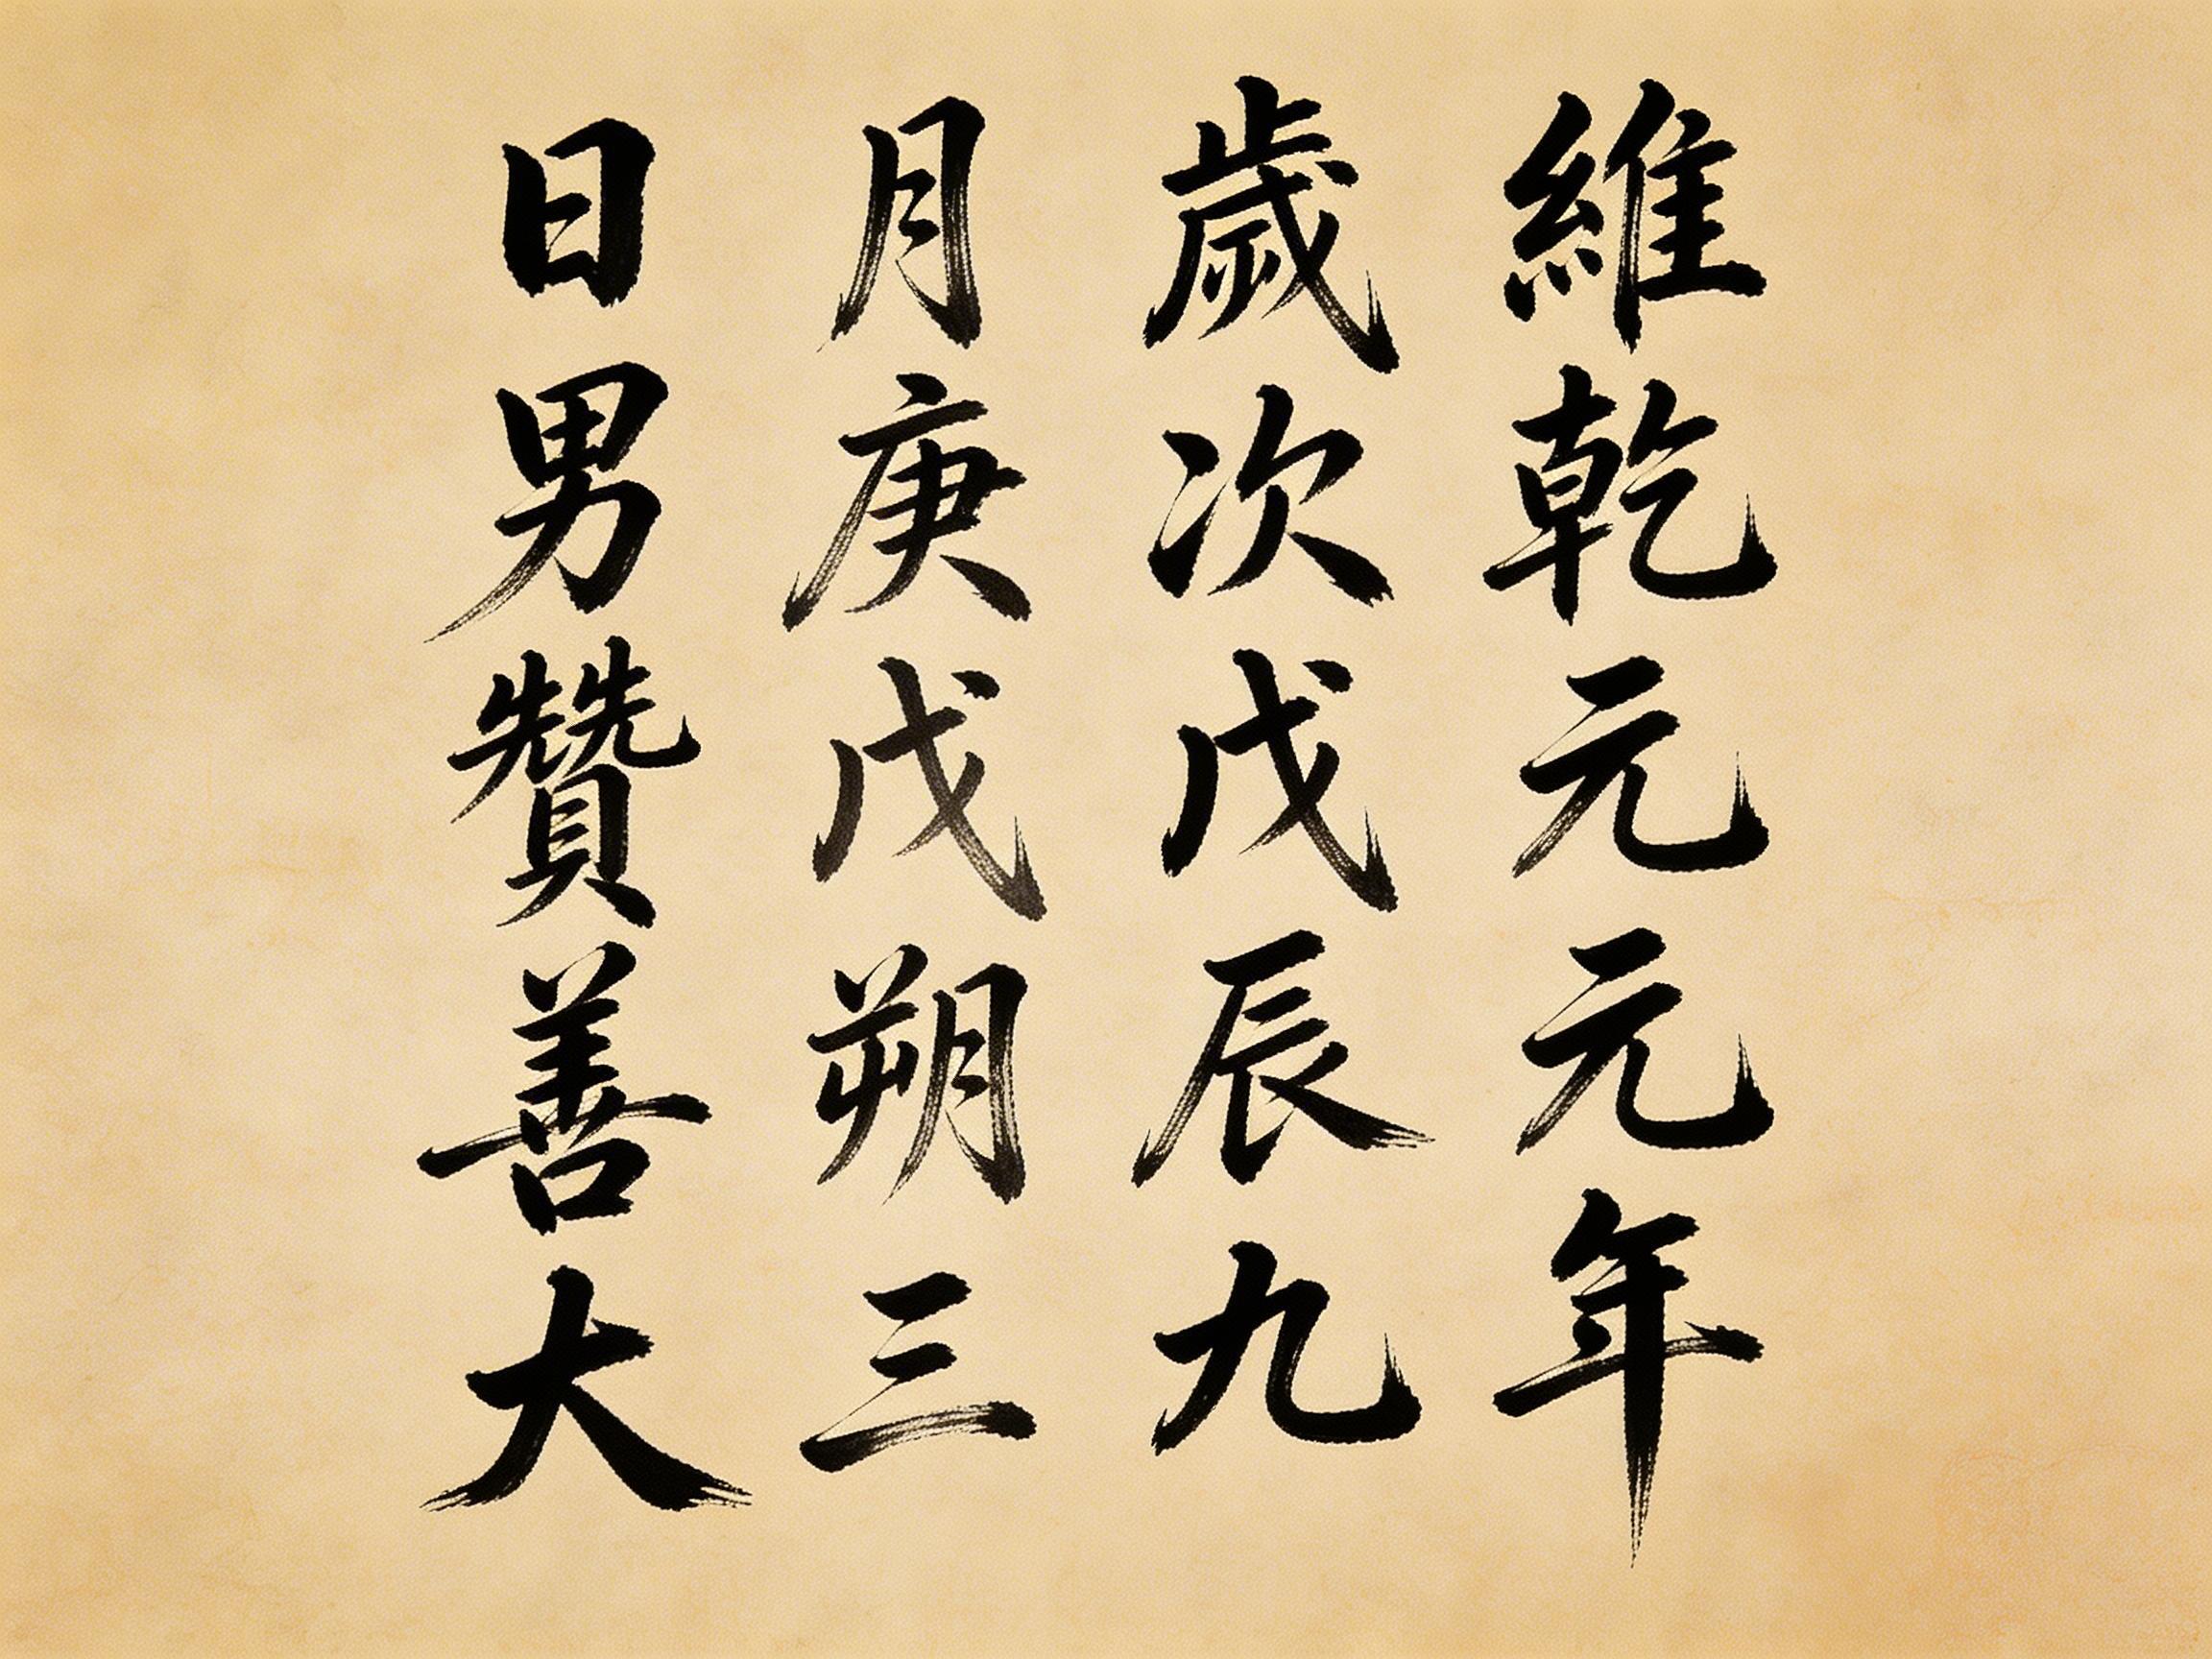 維乾元元年
歲次戊辰九
月庚戊朔三
日男贊善大